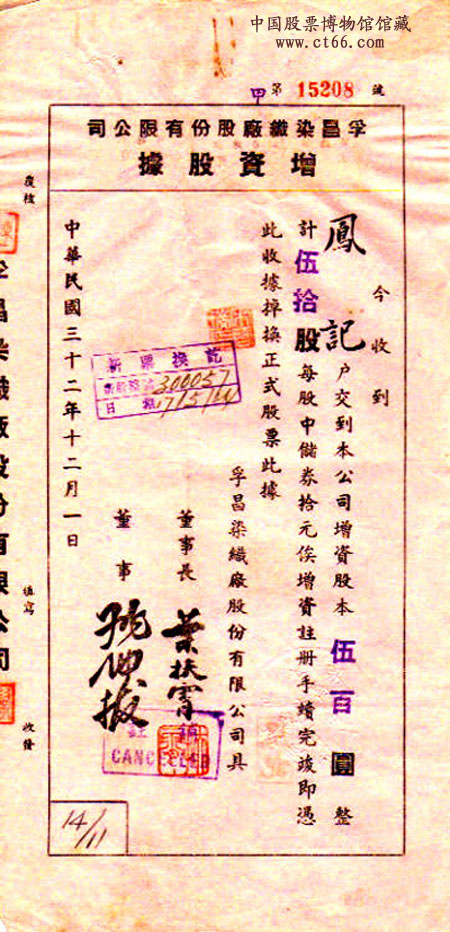 中国股票博物馆馆藏
www.ct66.com
甲第 15208 號
孚昌染織廠股份有限公司
增資股據
今收到
鳳記户交到本公司增資股本伍百圓整
計伍拾股每股中儲券拾元俟增資註册手續完竣即憑
此收據掉換正式股票此據
孚昌染織廠股份有限公司具
董事長 葉扶霄
董事
中華民國三十二年十二月一日
新票換訖
300057
日期 17/5/44
註銷
CANCELLED
14/11
覆核
填寫
收發
孚昌染織廠股份有限公司